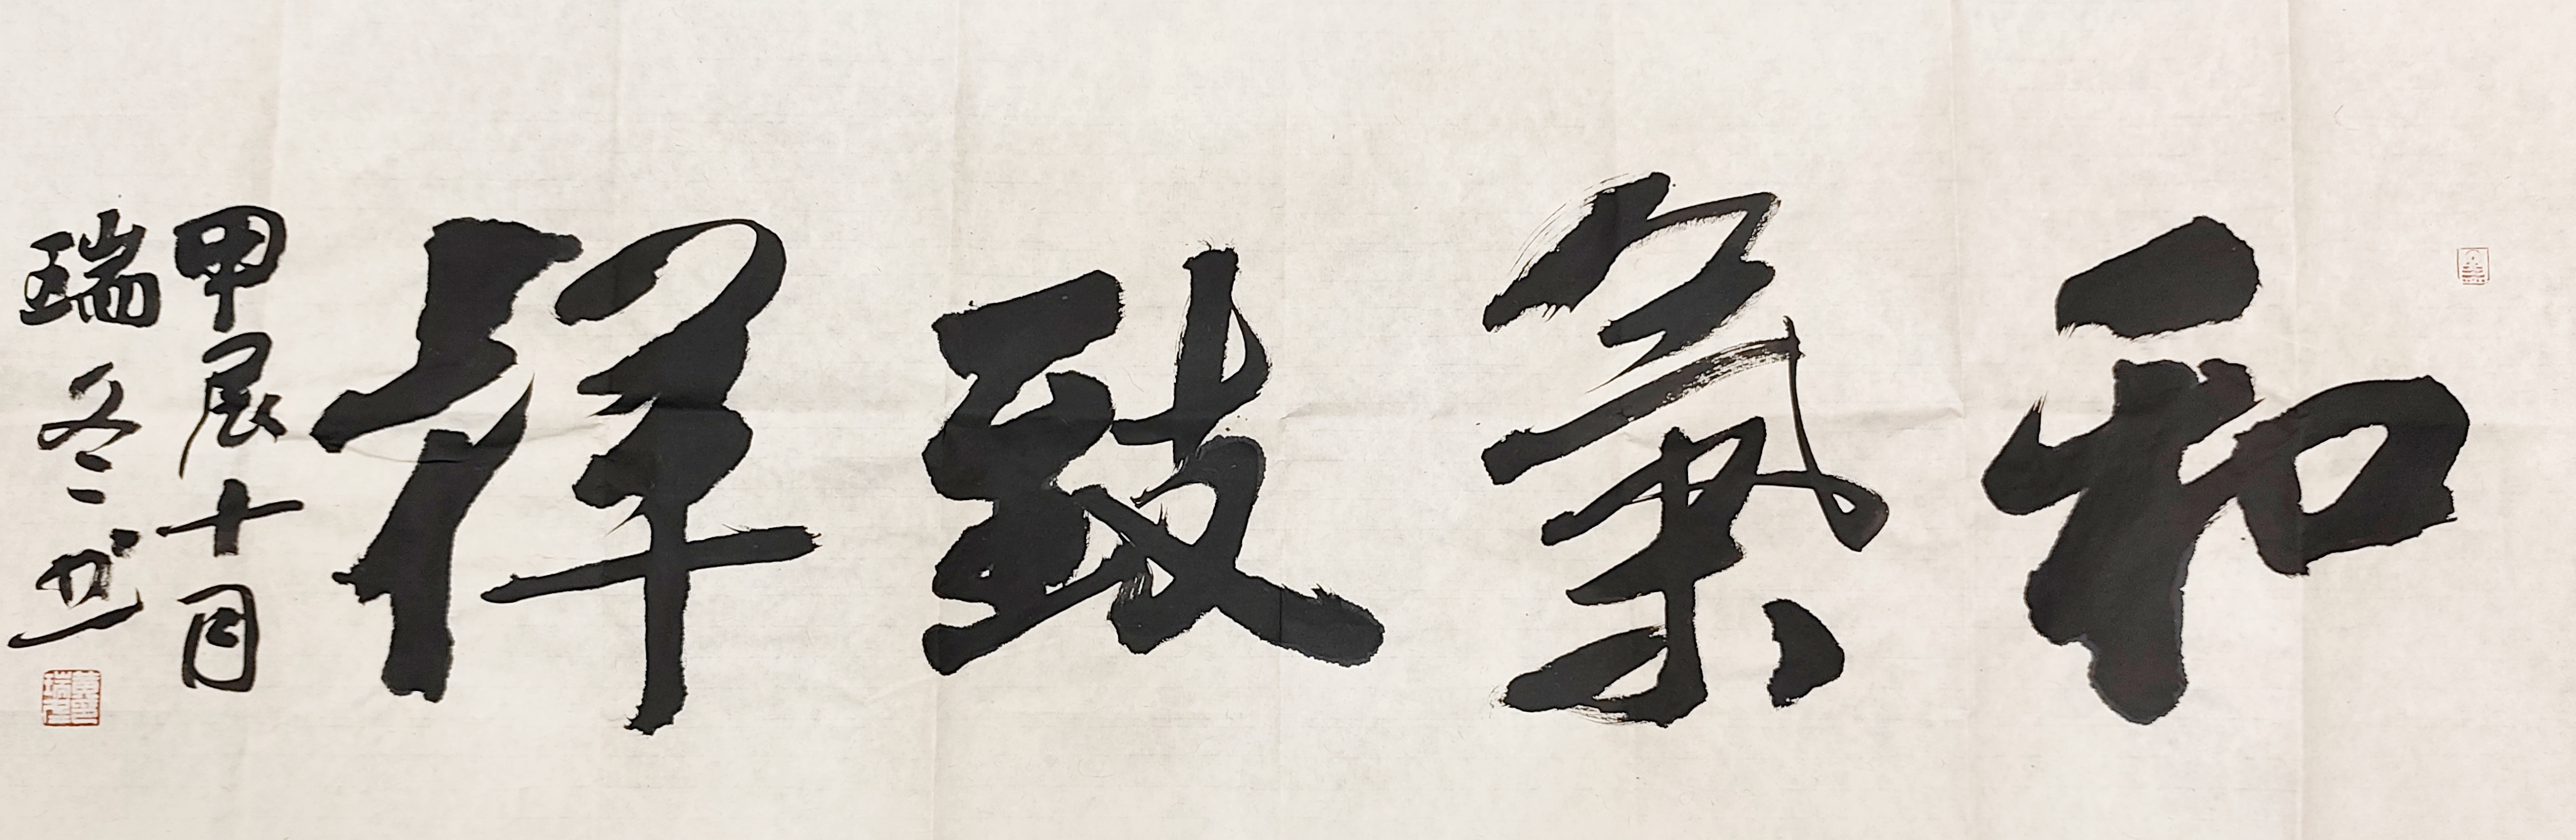 和氣致祥
甲辰十月
瑞冬书